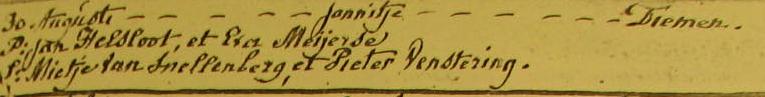 30 Augusti - - - - - Jannitje - - - - - - Diemen.
P: Jan Helsloot, et Eva Meijerse
S: Mietje Van Snellenberg, et Pieter Venstering.